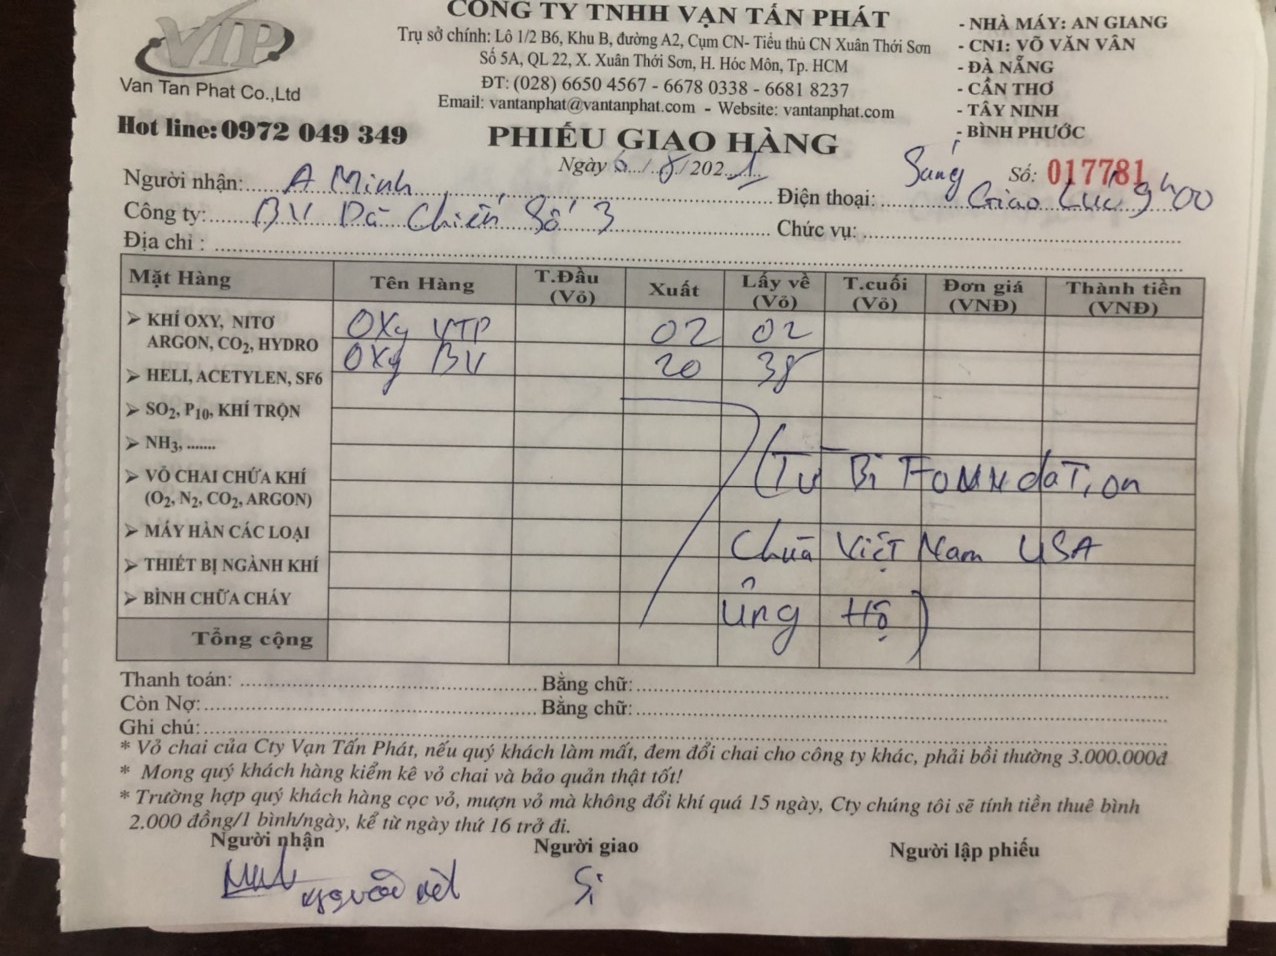 VTP
Van Tan Phat Co.,Ltd
Hot line: 0972 049 349
CÔNG TY TNHH VẠN TẤN PHÁT
Trụ sở chính: Lô 1/2 B6, Khu B, đường A2, Cụm CN- Tiểu thủ CN Xuân Thới Sơn
Số 5A, QL 22, X. Xuân Thới Sơn, H. Hóc Môn, Tp. HCM
ĐT: (028) 6650 4567 - 6678 0338 - 6681 8237
Email: vantanphat@vantanphat.com - Website: vantanphat.com
- NHÀ MÁY: AN GIANG
- CN1: VÕ VĂN VÂN
- ĐÀ NẴNG
- CẦN THƠ
- TÂY NINH
- BÌNH PHƯỚC
PHIẾU GIAO HÀNG
Ngày 6../8./202.1
Sáng Số: 017781
Người nhận: A Minh Điện thoại: Giao Lúc 9h00
Công ty: BV Dã Chiến Số 3 Chức vụ:
Địa chỉ :
Mặt Hàng Tên Hàng T.Đầu (Vỏ) Xuất Lấy về (Vỏ) T.cuối (Vỏ) Đơn giá (VNĐ) Thành tiền (VNĐ)
➢ KHÍ OXY, NITƠ OXy VTP 02 02
ARGON, CO2, HYDRO OXy BV 20 38
➢ HELI, ACETYLEN, SF6
➢ SO2, P10, KHÍ TRỘN
➢ NH3, .......
(Từ Bi FOUNdaTion
➢ VỎ CHAI CHỨA KHÍ
(O2, N2, CO2, ARGON)
➢ MÁY HÀN CÁC LOẠI
Chùa Việt Nam USA
➢ THIẾT BỊ NGÀNH KHÍ
➢ BÌNH CHỮA CHÁY
ủng Hộ)
Tổng cộng
Thanh toán: Bằng chữ:
Còn Nợ: Bằng chữ:
Ghi chú:
* Vỏ chai của Cty Vạn Tấn Phát, nếu quý khách làm mất, đem đổi chai cho công ty khác, phải bồi thường 3.000.000đ
* Mong quý khách hàng kiểm kê vỏ chai và bảo quản thật tốt!
* Trường hợp quý khách hàng cọc vỏ, mượn vỏ mà không đổi khí quá 15 ngày, Cty chúng tôi sẽ tính tiền thuê bình
2.000 đồng/1 bình/ngày, kể từ ngày thứ 16 trở đi.
Người nhận Người giao Người lập phiếu
Sĩ